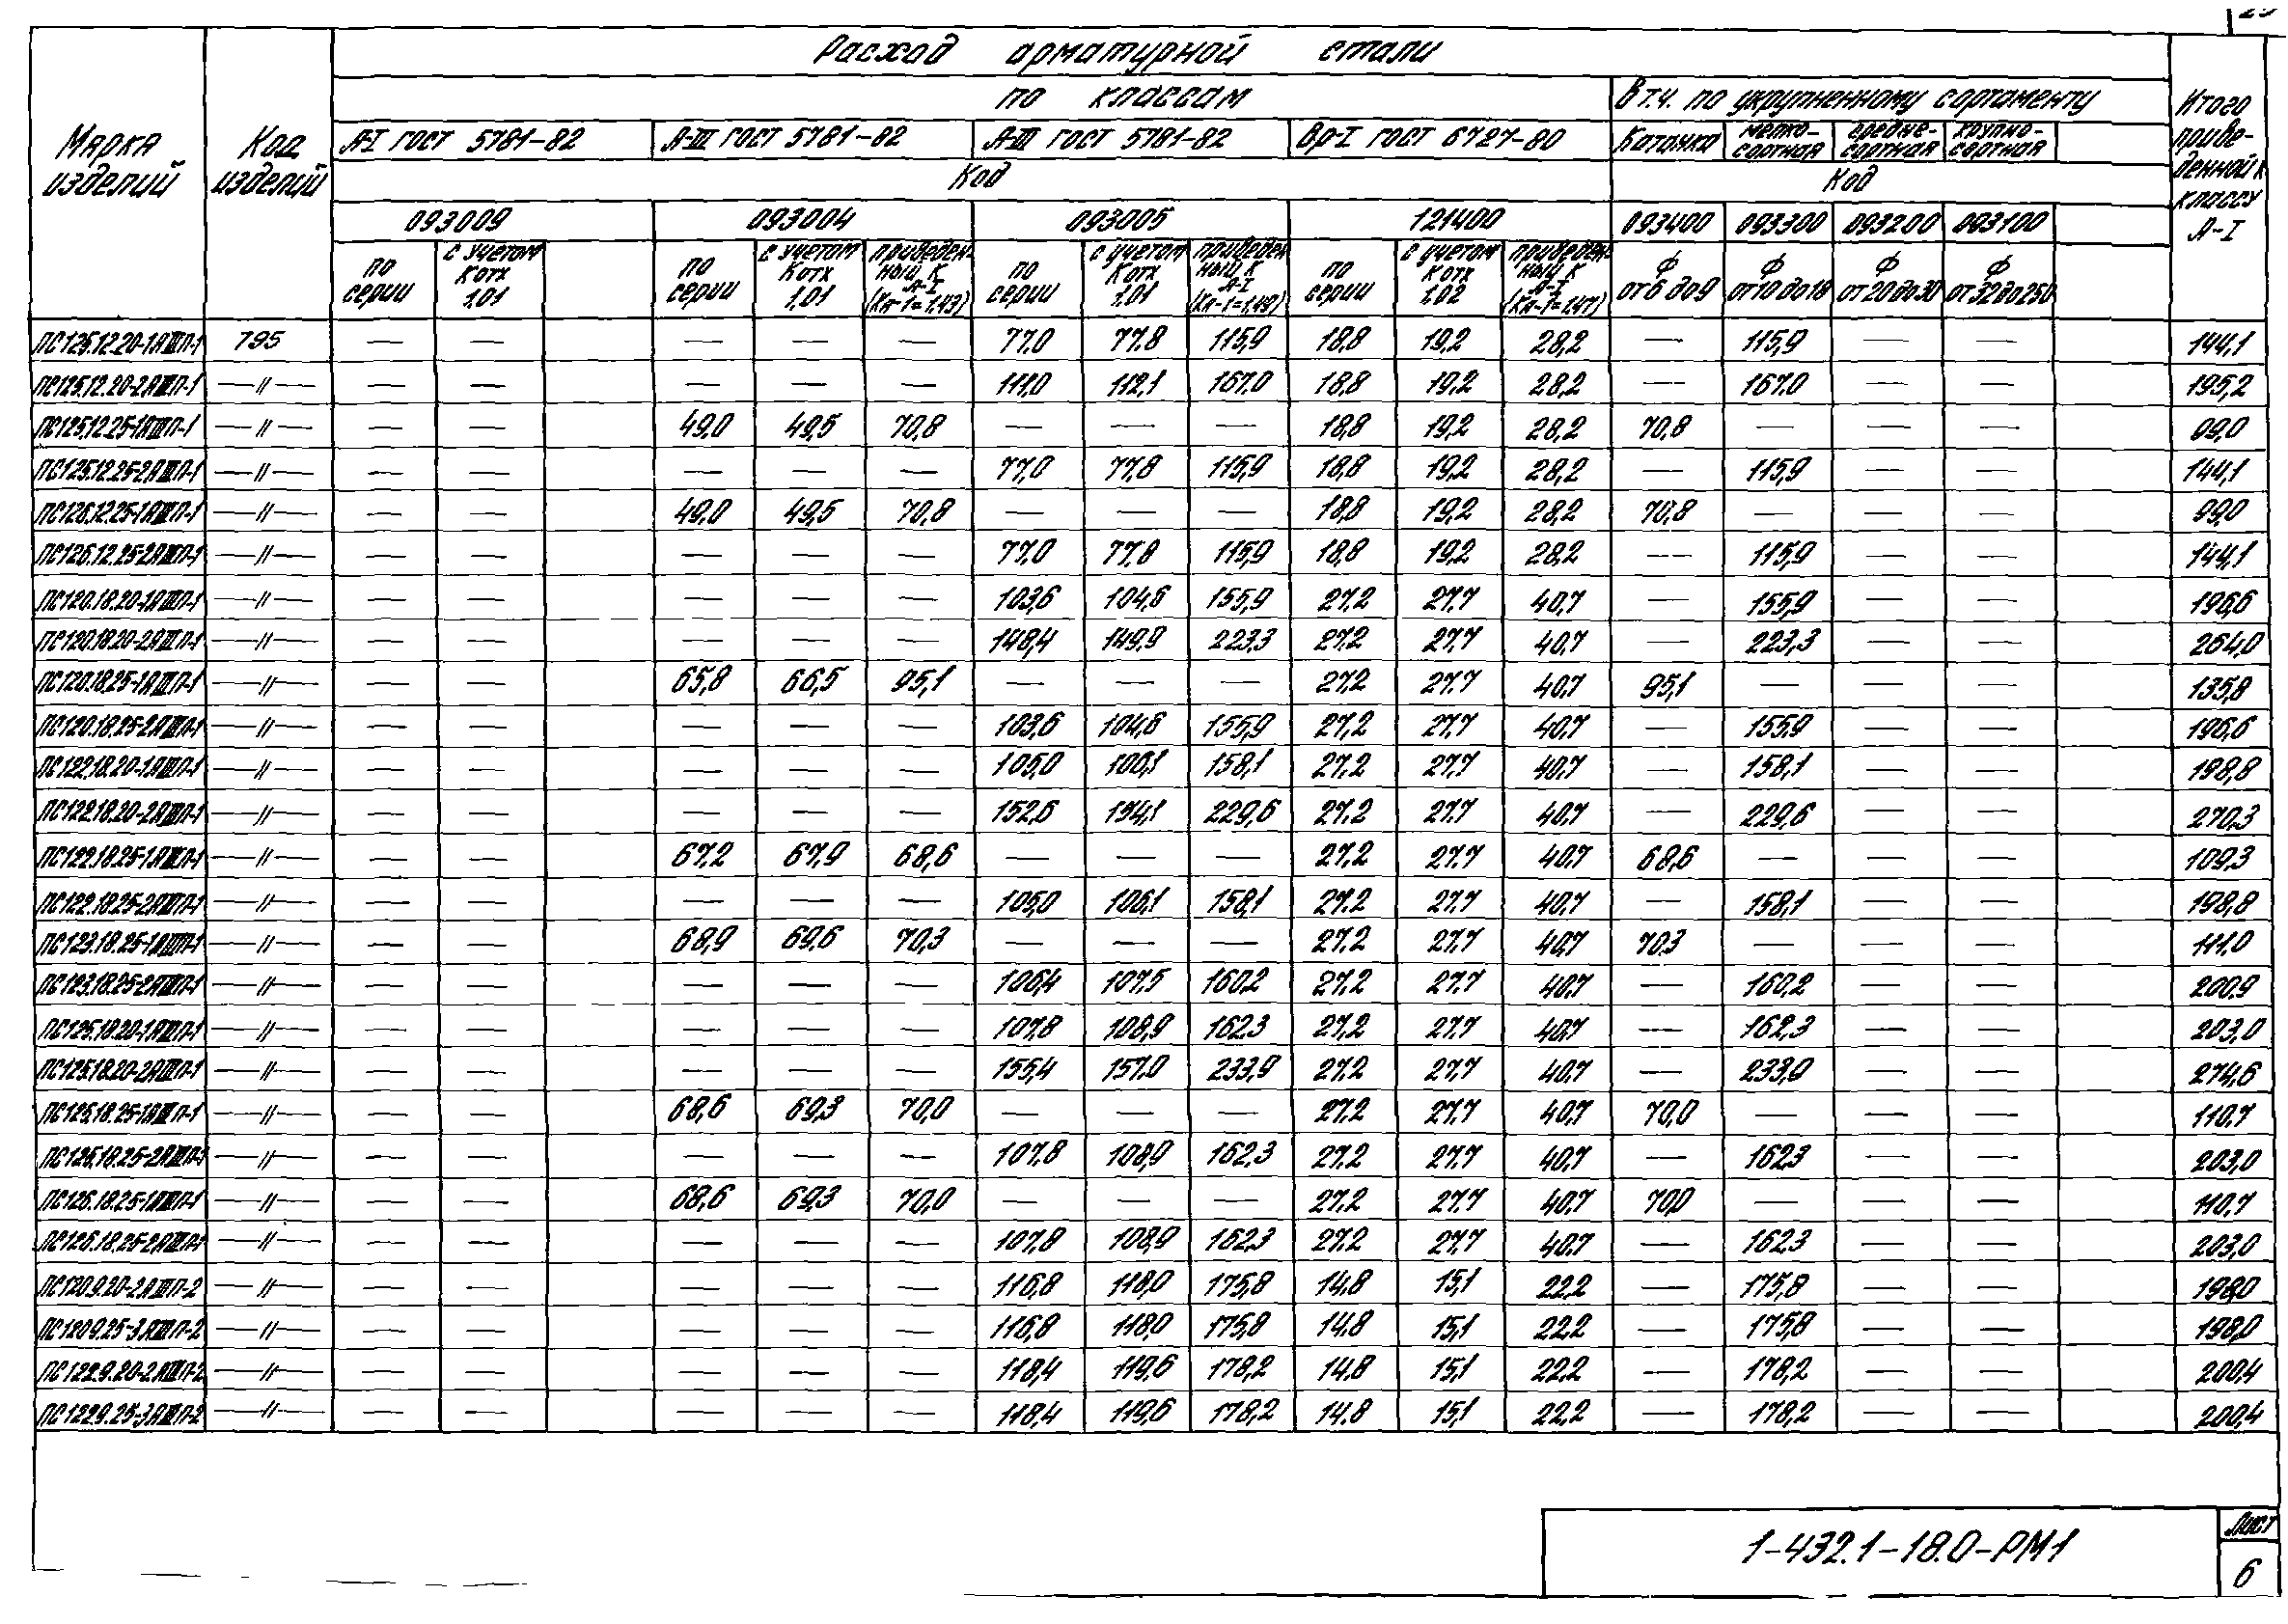 Расход арматурной стали
Марка изделий
Код изделий
по классам
В т.ч. по укрупненному сортаменту
Итого приведенной к классу А-I
А-I ГОСТ 5781-82 | А-III ГОСТ 5781-82 | А-III ГОСТ 5781-82 | Вр-I ГОСТ 6727-80 | Катанка | мелкосортная | среднесортная | крупносортная
Код | Код
093009 | 093004 | 093005 | 121400 | 093400 | 093300 | 093200 | 093100
по серии | с учетом Котх 1.01 | по серии | с учетом Котх 1,01 | приведенный к А-I (Ка-1=1,43) | по серии | с учетом Котх 1.01 | приведенный к А-I (Ка-1=1,49) | по серии | с учетом Котх 1.02 | приведенный к А-I (Ка-1=1,47) | Ф от 6 до 9 | Ф от 10 до 18 | Ф от 20 до 30 | Ф от 32 до 250
ПС125.12.20-1АIIIП-1 795 — — — — — 77,0 77,8 115,9 18,8 19,2 28,2 — 115,9 — — 144,1
ПС125.12.20-2АIIIП-1 —//— — — — — — 111,0 112,1 167,0 18,8 19,2 28,2 — 167,0 — — 195,2
ПС125.12.25-1АIIIП-1 —//— — — 49,0 49,5 70,8 — — — 18,8 19,2 28,2 70,8 — — — 99,0
ПС125.12.25-2АIIIП-1 —//— — — — — — 77,0 77,8 115,9 18,8 19,2 28,2 — 115,9 — — 144,1
ПС126.12.25-1АIIIП-1 —//— — — 49,0 49,5 70,8 — — — 18,8 19,2 28,2 70,8 — — — 99,0
ПС126.12.25-2АIIIП-1 —//— — — — — — 77,0 77,8 115,9 18,8 19,2 28,2 — 115,9 — — 144,1
ПС120.18.20-1АIIIП-1 —//— — — — — — 103,6 104,6 155,9 27,2 27,7 40,7 — 155,9 — — 196,6
ПС120.18.20-2АIIIП-1 —//— — — — — — 148,4 149,9 223,3 27,2 27,7 40,7 — 223,3 — — 264,0
ПС120.18.25-1АIIIП-1 —//— — — 65,8 66,5 95,1 — — — 27,2 27,7 40,7 95,1 — — — 135,8
ПС120.18.25-2АIIIП-1 —//— — — — — — 103,6 104,6 155,9 27,2 27,7 40,7 — 155,9 — — 196,6
ПС122.18.20-1АIIIП-1 —//— — — — — — 105,0 106,1 158,1 27,2 27,7 40,7 — 158,1 — — 198,8
ПС122.18.20-2АIIIП-1 —//— — — — — — 152,6 154,1 229,6 27,2 27,7 40,7 — 229,6 — — 270,3
ПС122.18.25-1АIIIП-1 —//— — — 67,2 67,9 68,6 — — — 27,2 27,7 40,7 68,6 — — — 109,3
ПС122.18.25-2АIIIП-1 —//— — — — — — 105,0 106,1 158,1 27,2 27,7 40,7 — 158,1 — — 198,8
ПС123.18.25-1АIIIП-1 —//— — — 68,9 69,6 70,3 — — — 27,2 27,7 40,7 70,3 — — — 111,0
ПС123.18.25-2АIIIП-1 —//— — — — — — 106,4 107,5 160,2 27,2 27,7 40,7 — 160,2 — — 200,9
ПС125.18.20-1АIIIП-1 —//— — — — — — 107,8 108,9 162,3 27,2 27,7 40,7 — 162,3 — — 203,0
ПС125.18.20-2АIIIП-1 —//— — — — — — 155,4 157,0 233,9 27,2 27,7 40,7 — 233,9 — — 274,6
ПС125.18.25-1АIIIП-1 —//— — — 68,6 69,3 70,0 — — — 27,2 27,7 40,7 70,0 — — — 110,7
ПС125.18.25-2АIIIП-1 —//— — — — — — 107,8 108,9 162,3 27,2 27,7 40,7 — 162,3 — — 203,0
ПС126.18.25-1АIIIП-1 —//— — — 68,6 69,3 70,0 — — — 27,2 27,7 40,7 70,0 — — — 110,7
ПС126.18.25-2АIIIП-1 —//— — — — — — 107,8 108,9 162,3 27,2 27,7 40,7 — 162,3 — — 203,0
ПС120.9.20-2АIIIП-2 —//— — — — — — 116,8 118,0 175,8 14,8 15,1 22,2 — 175,8 — — 198,0
ПС120.9.25-3АIIIП-2 —//— — — — — — 116,8 118,0 175,8 14,8 15,1 22,2 — 175,8 — — 198,0
ПС122.9.20-2АIIIП-2 —//— — — — — — 118,4 119,6 178,2 14,8 15,1 22,2 — 178,2 — — 200,4
ПС122.9.25-3АIIIП-2 —//— — — — — — 118,4 119,6 178,2 14,8 15,1 22,2 — 178,2 — — 200,4
1-432.1-18.0-РМ1
Лист
6